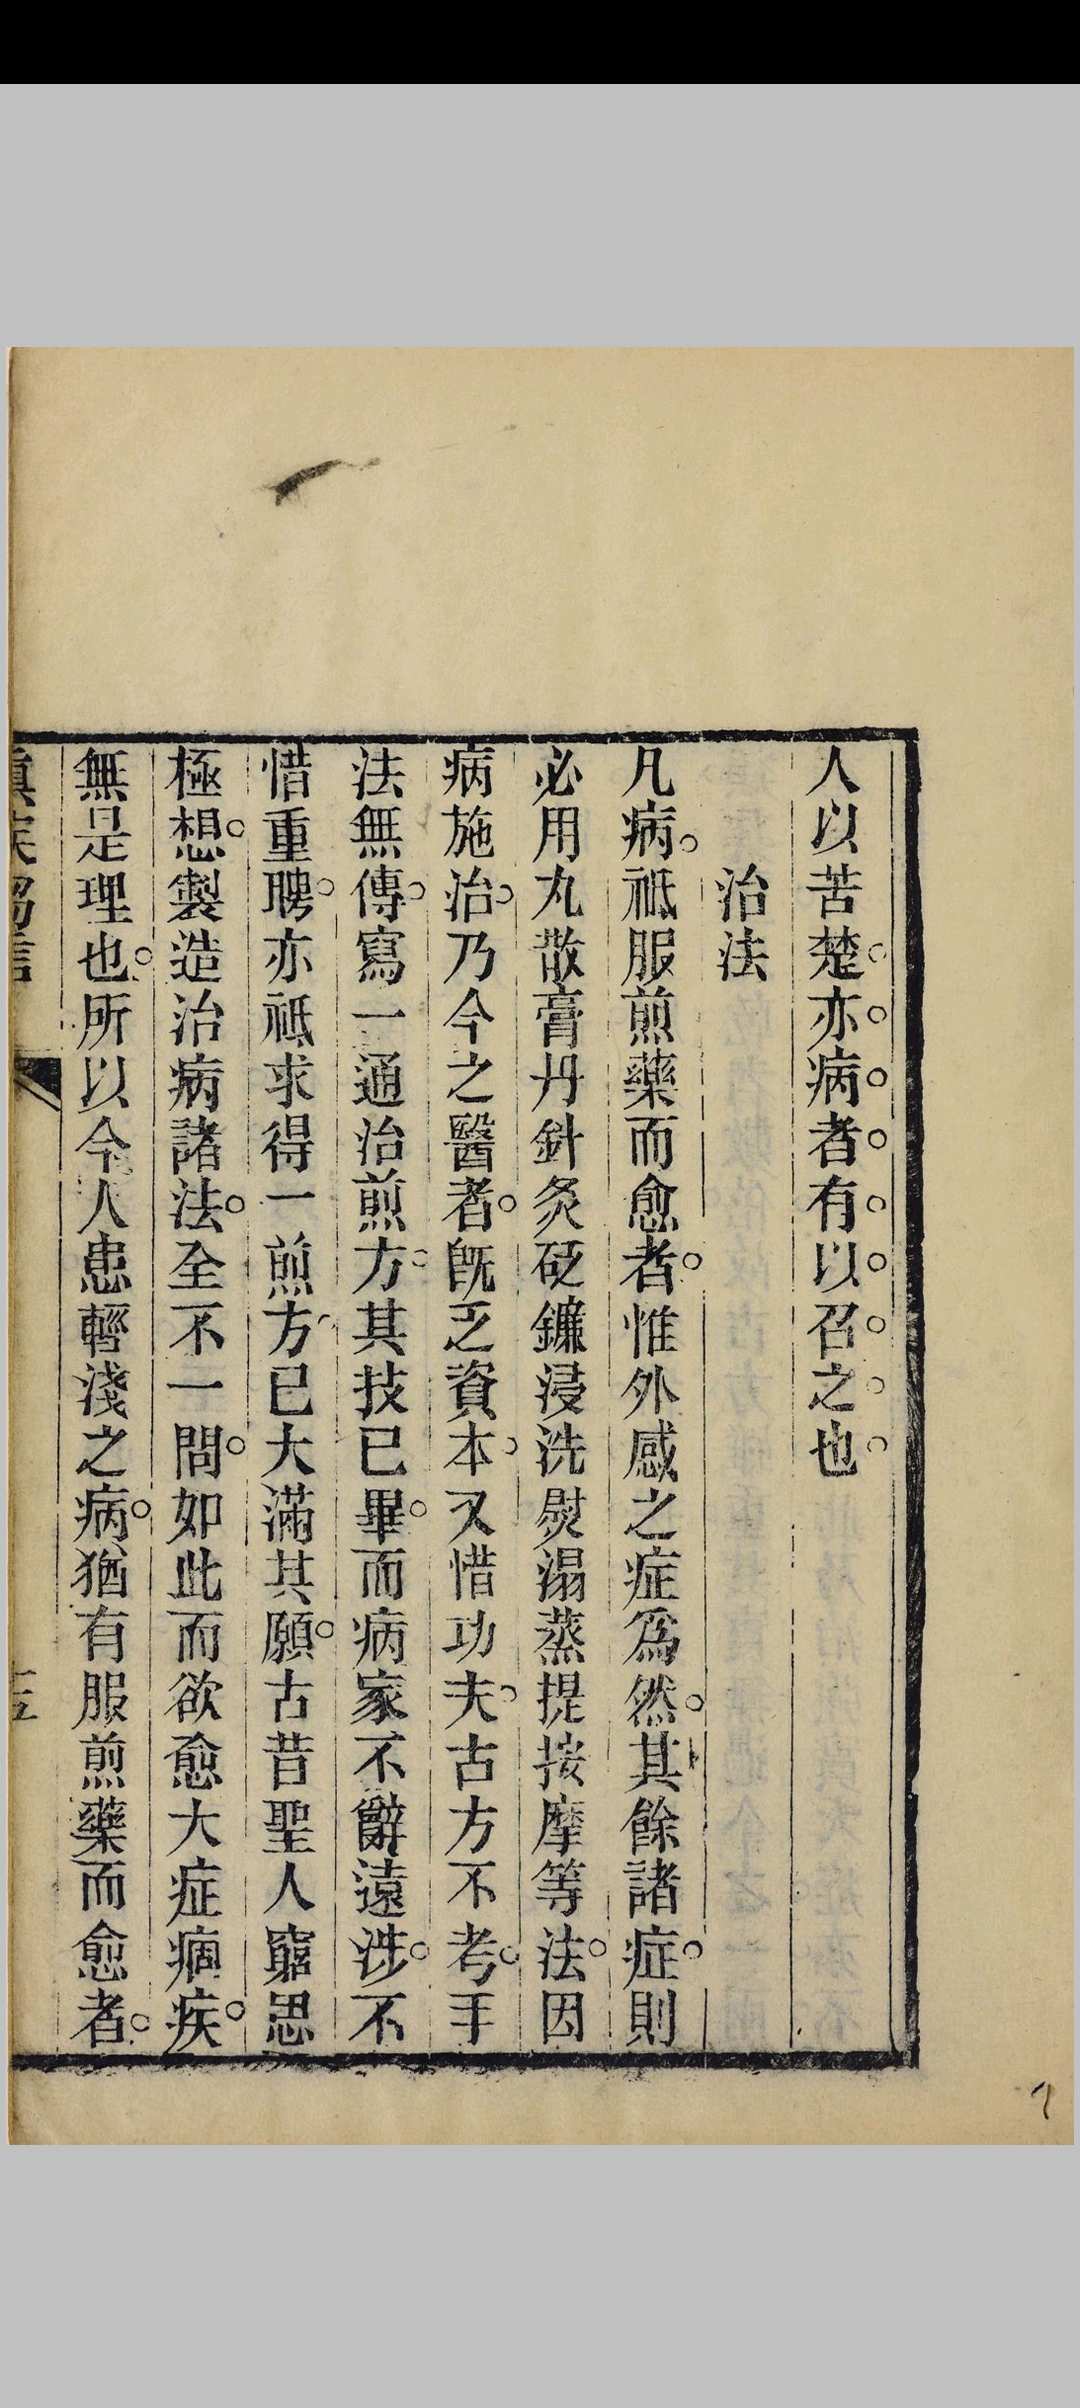 人以苦楚亦病者有以召之也
治法
凡病祗服煎藥而愈者惟外感之症爲然其餘諸症則
必用丸散膏丹針灸砭鐮浸洗熨溻蒸提按摩等法因
病施治乃今之醫者旣乏資本又惜功夫古方不考手
法無傳寫一通治煎方其技已畢而病家不辭遠涉不
惜重聘亦祗求得一煎方已大滿其願古昔聖人窮思
極想製造治病諸法全不一問如此而欲愈大症痼疾
無是理也所以今人患輕淺之病猶有服煎藥而愈者